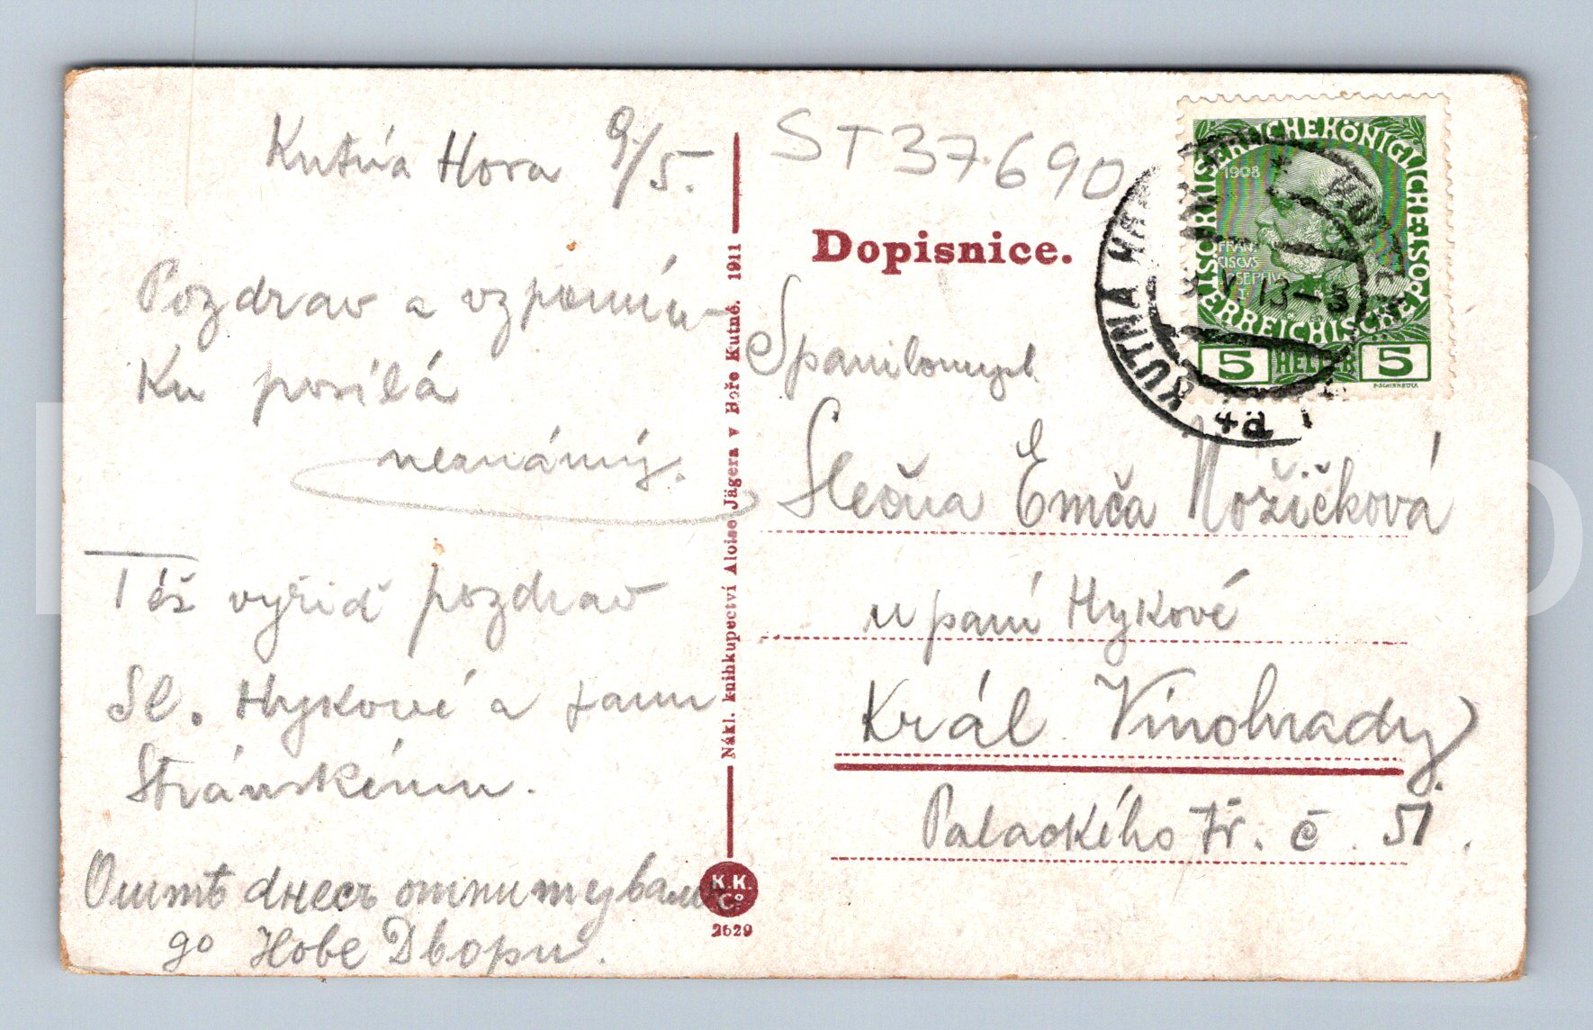 Kutná Hora 9/5.
Pozdrav a vzpomín-
ku posílá
neznámý.
Též vyřiď pozdrav
Sl. Hykové a panu
Stránskému.
днесь
до Нове Двору.
Nákl. knihkupectví Aloise Jägera v Hoře Kutné. 1911
K.K.
Co
2629
ST37690
Dopisnice.
Spanilomysl.
Slečna Emča Nožičková
u paní Hykové
Král. Vinohrady
Palackého tř. č. 51.
KAISERLICHE KÖNIGLICHE ÖSTERREICHISCHE POST
1908
FRAN
CISCVS
IOSEPHVS
I
5 HELLER 5
KUTNÁ HORA
V 13-3